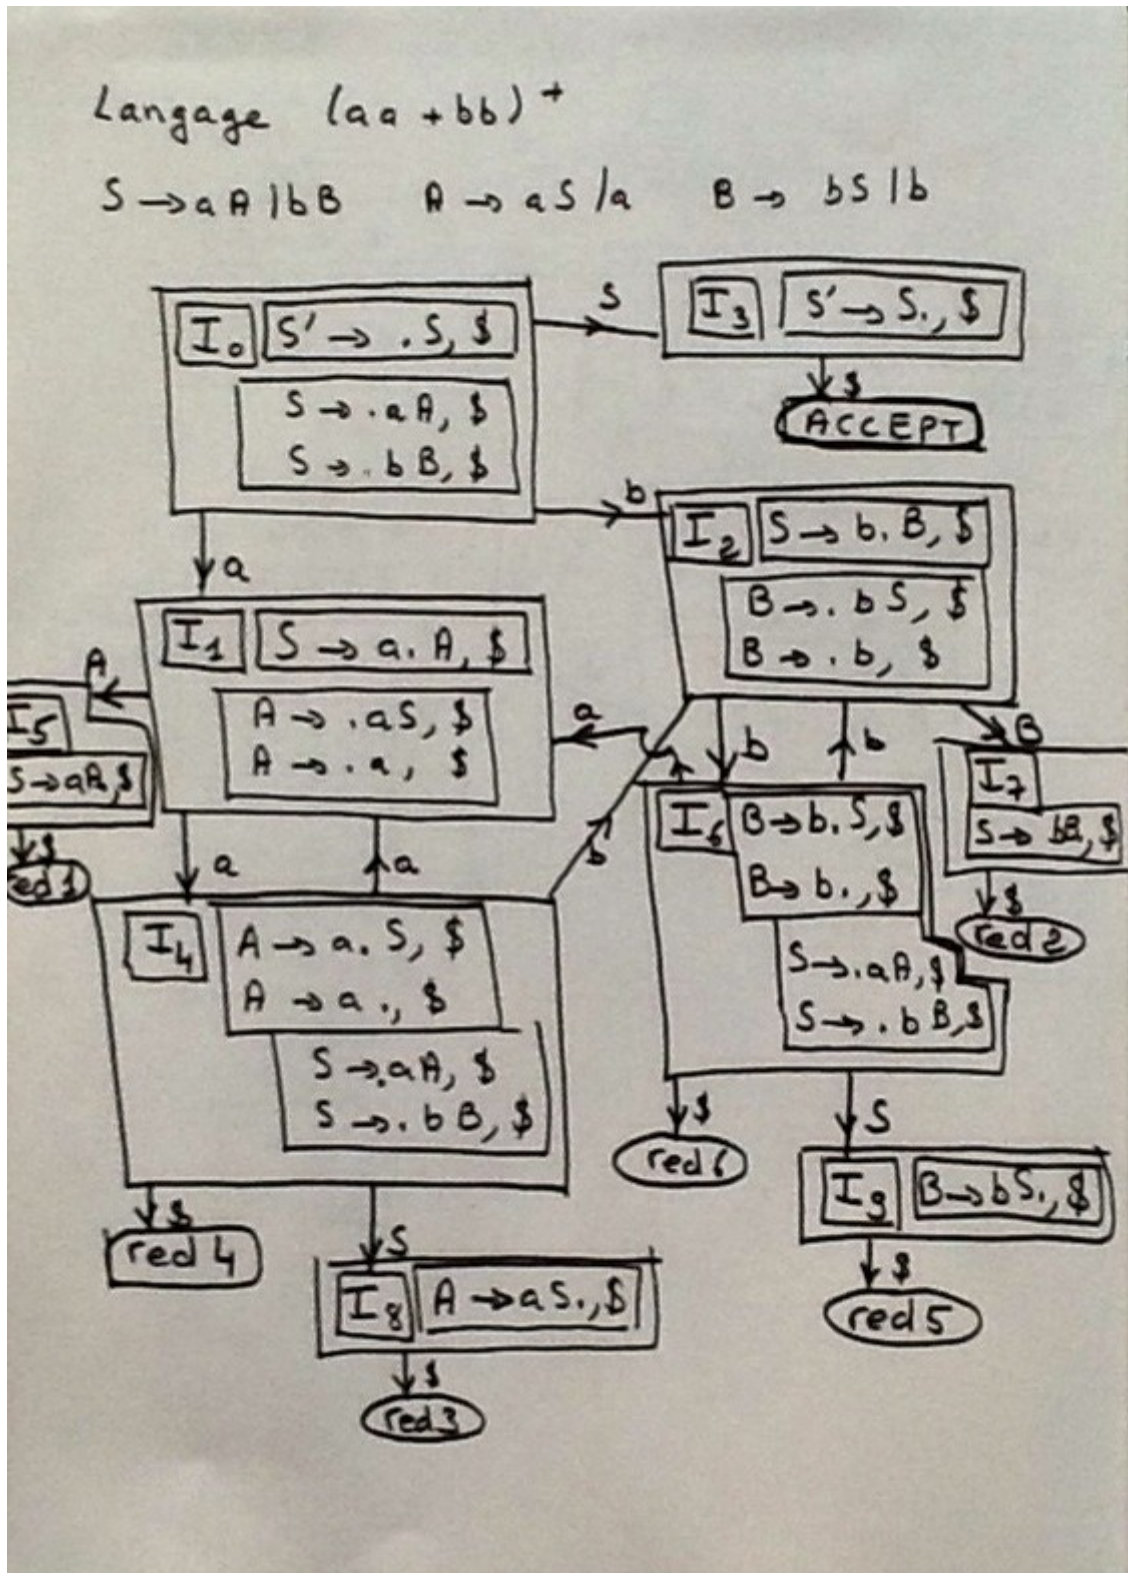 Langage (aa + bb)⁺
S → aA | bB A → aS / a B → bS | b
I₀ S' → .S, $
S → .aA, $
S → .bB, $
S
I₃ S' → S., $
$
ACCEPT
b
I₂ S → b.B, $
B → .bS, $
B → .b, $
a
I₁ S → a.A, $
A → .aS, $
A → .a, $
A
I5
S → aA, $
$
ed 1
a
a
a
b
b
b
B
I₇
S → bB, $
$
red 2
I₆ B → b.S, $
B → b., $
S → .aA, $
S → .bB, $
I₄ A → a.S, $
A → a., $
S → .aA, $
S → .bB, $
$
red 6
S
I₉ B → bS., $
$
red 5
$
red 4
S
I₈ A → aS., $
$
red 3